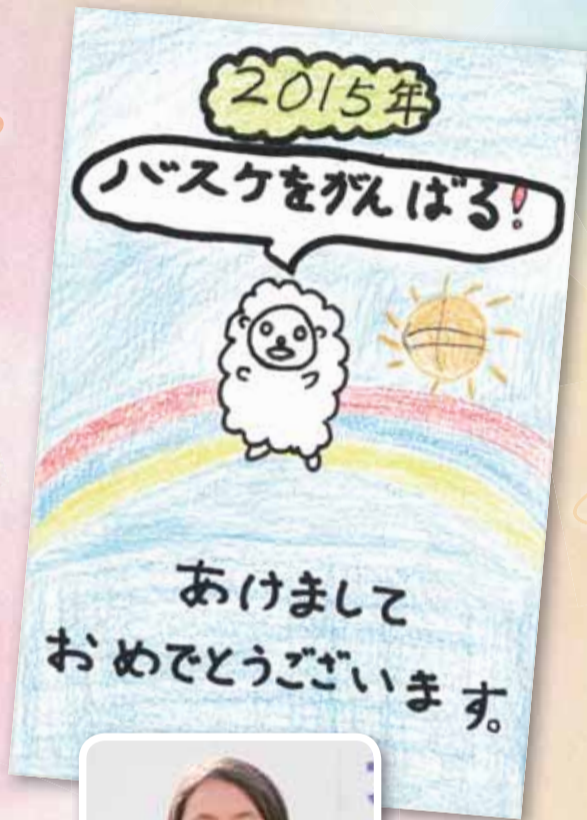 2015年
バスケをがんばる!
あけまして
おめでとうございます。